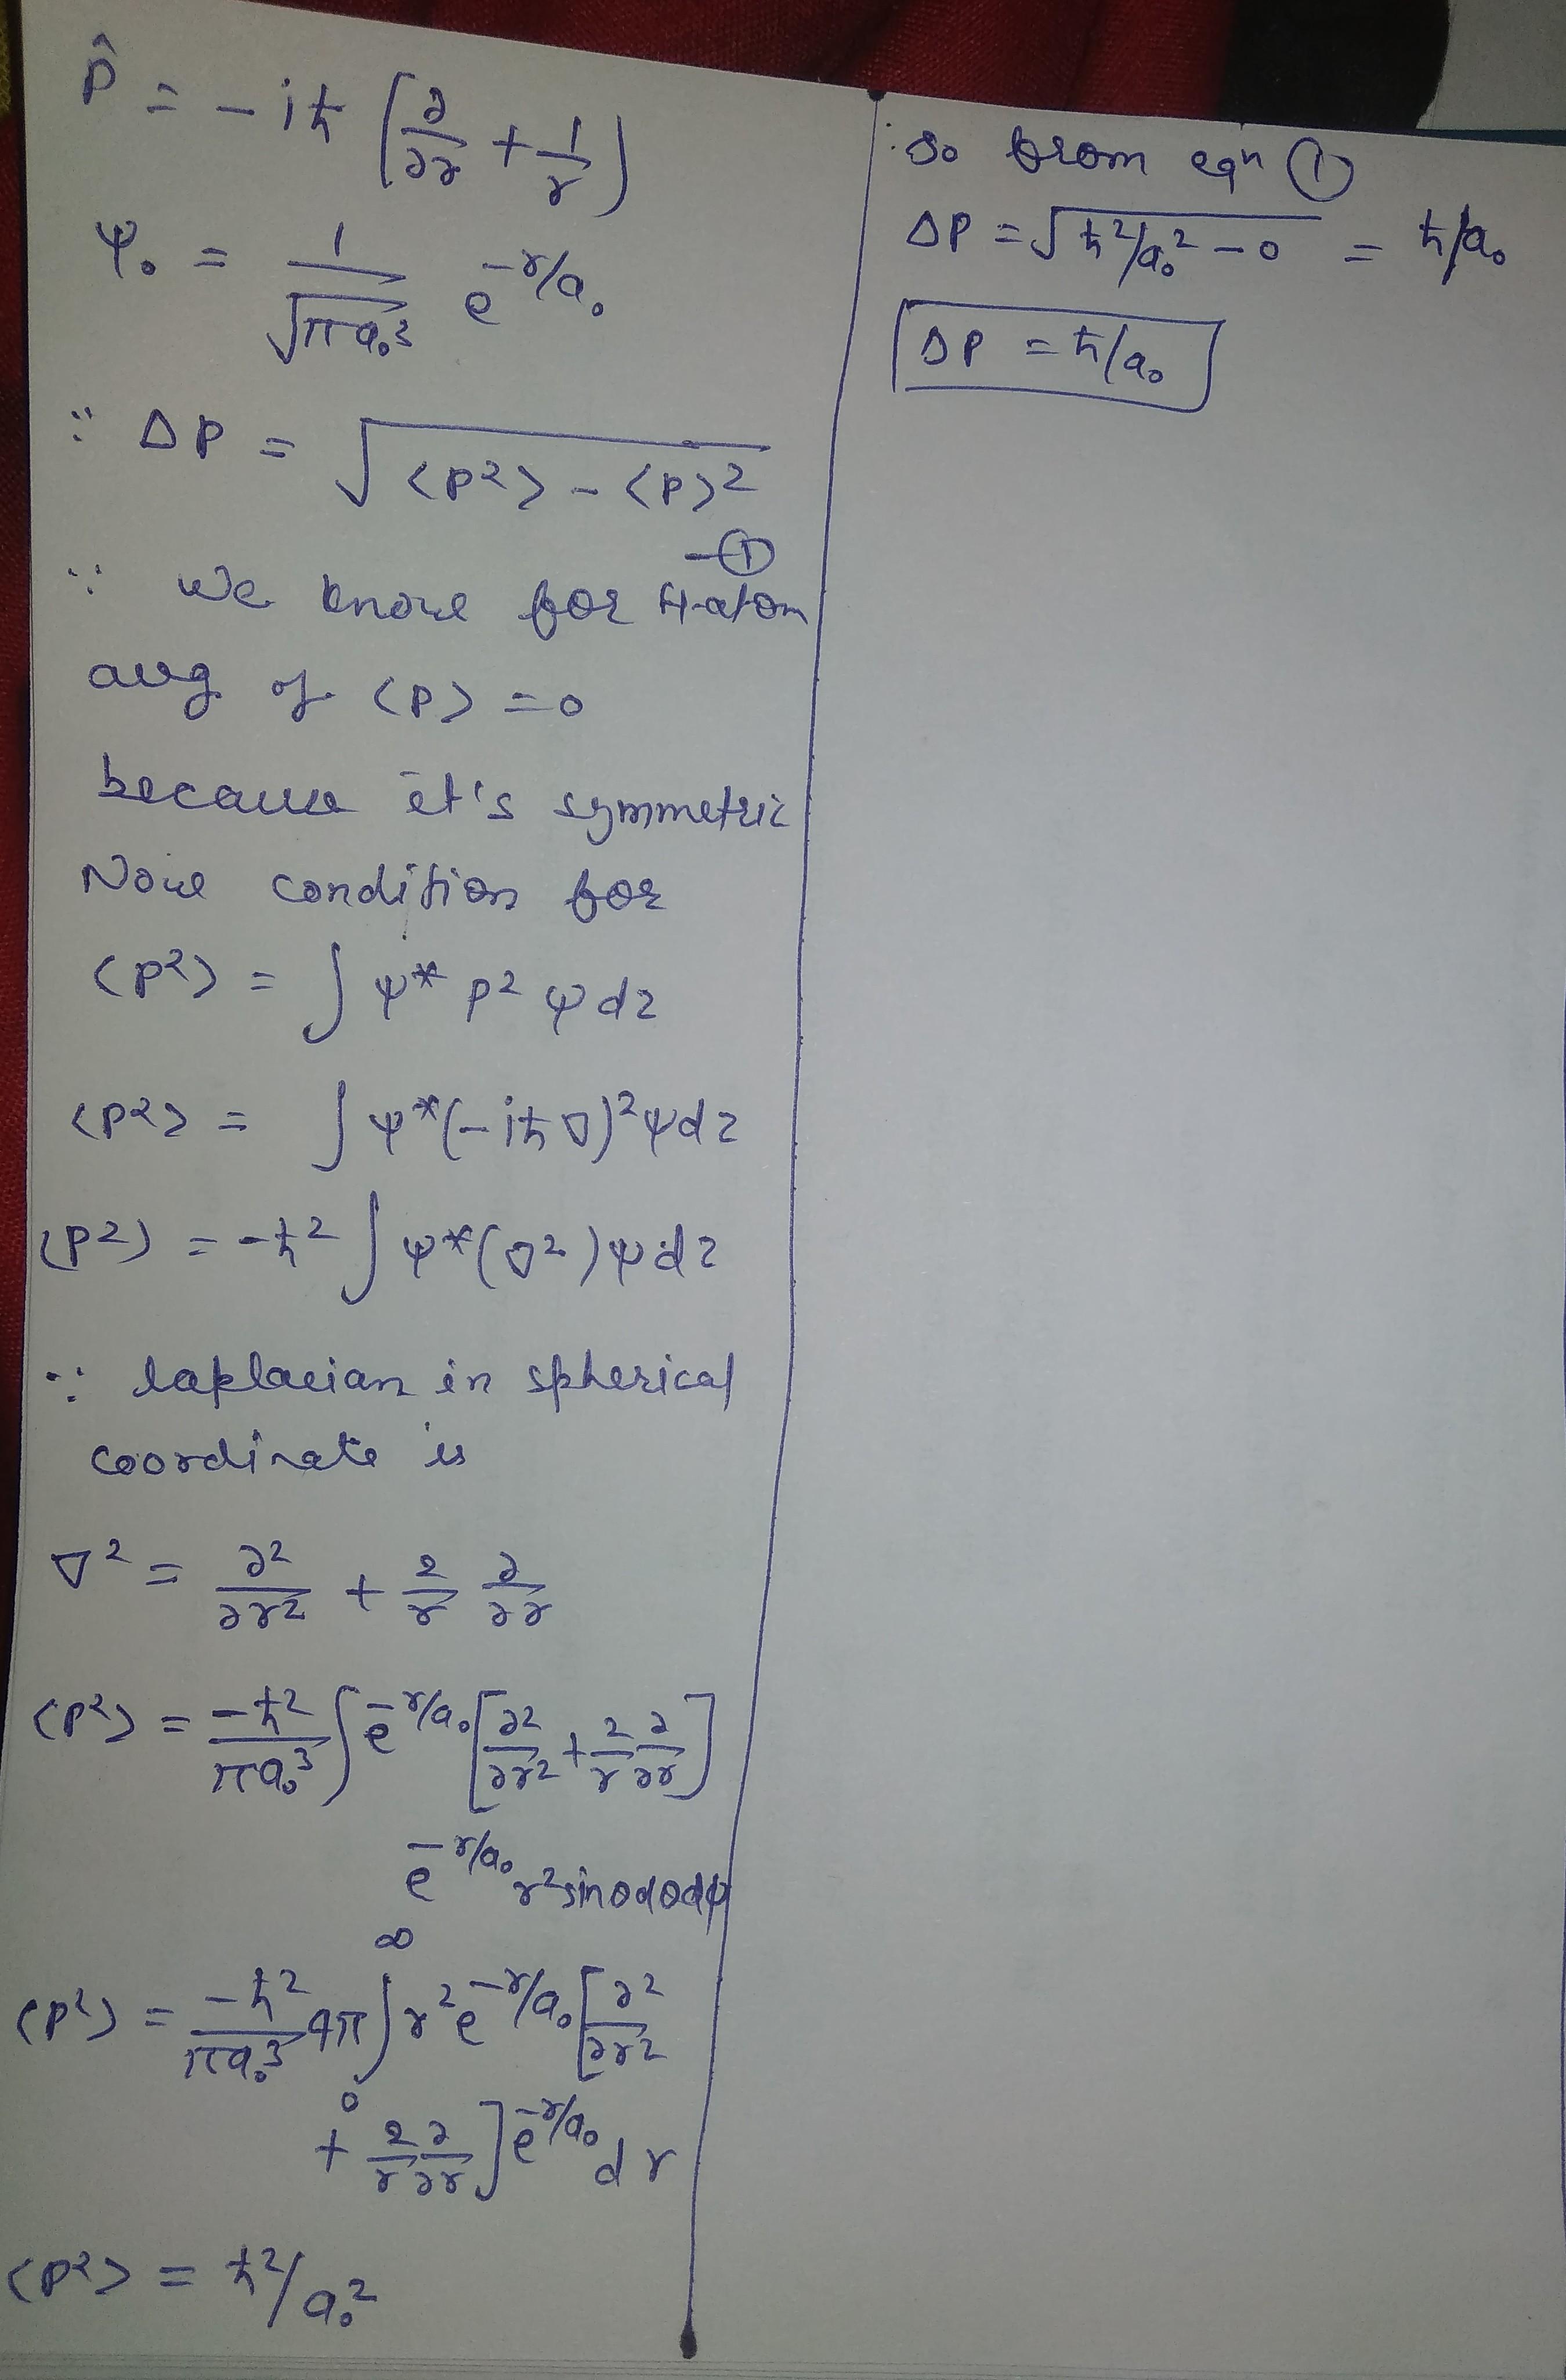 p̂ = -iħ (∂/∂r + 1/r)
Ψ₀ = 1/√πa₀³ e^-r/a₀
∵ ΔP = √<P²> - <P>²
-①
∵ we know for H-atom
avg of <P> = 0
because it's symmetric
Now condition for
<P²> = ∫ψ* P² ψ dz
<P²> = ∫ψ*(-iħ∇)²ψdz
<P²> = -ħ² ∫ψ*(∇²)ψdz
∵ laplacian in spherical
coordinate is
∇² = ∂²/∂r² + 2/r ∂/∂r
<P²> = -ħ²/πa₀³ ∫e^-r/a₀ [∂²/∂r² + 2/r ∂/∂r]
e^-r/a₀ r² sinθdθdφ
<P²> = -ħ²/πa₀³ 4π ∫₀^∞ r² e^-r/a₀ [∂²/∂r²
+ 2/r ∂/∂r] e^-r/a₀ dr
<P²> = ħ²/a₀²
∴ So from eqⁿ ①
ΔP = √ħ²/a₀² - 0 = ħ/a₀
ΔP = ħ/a₀